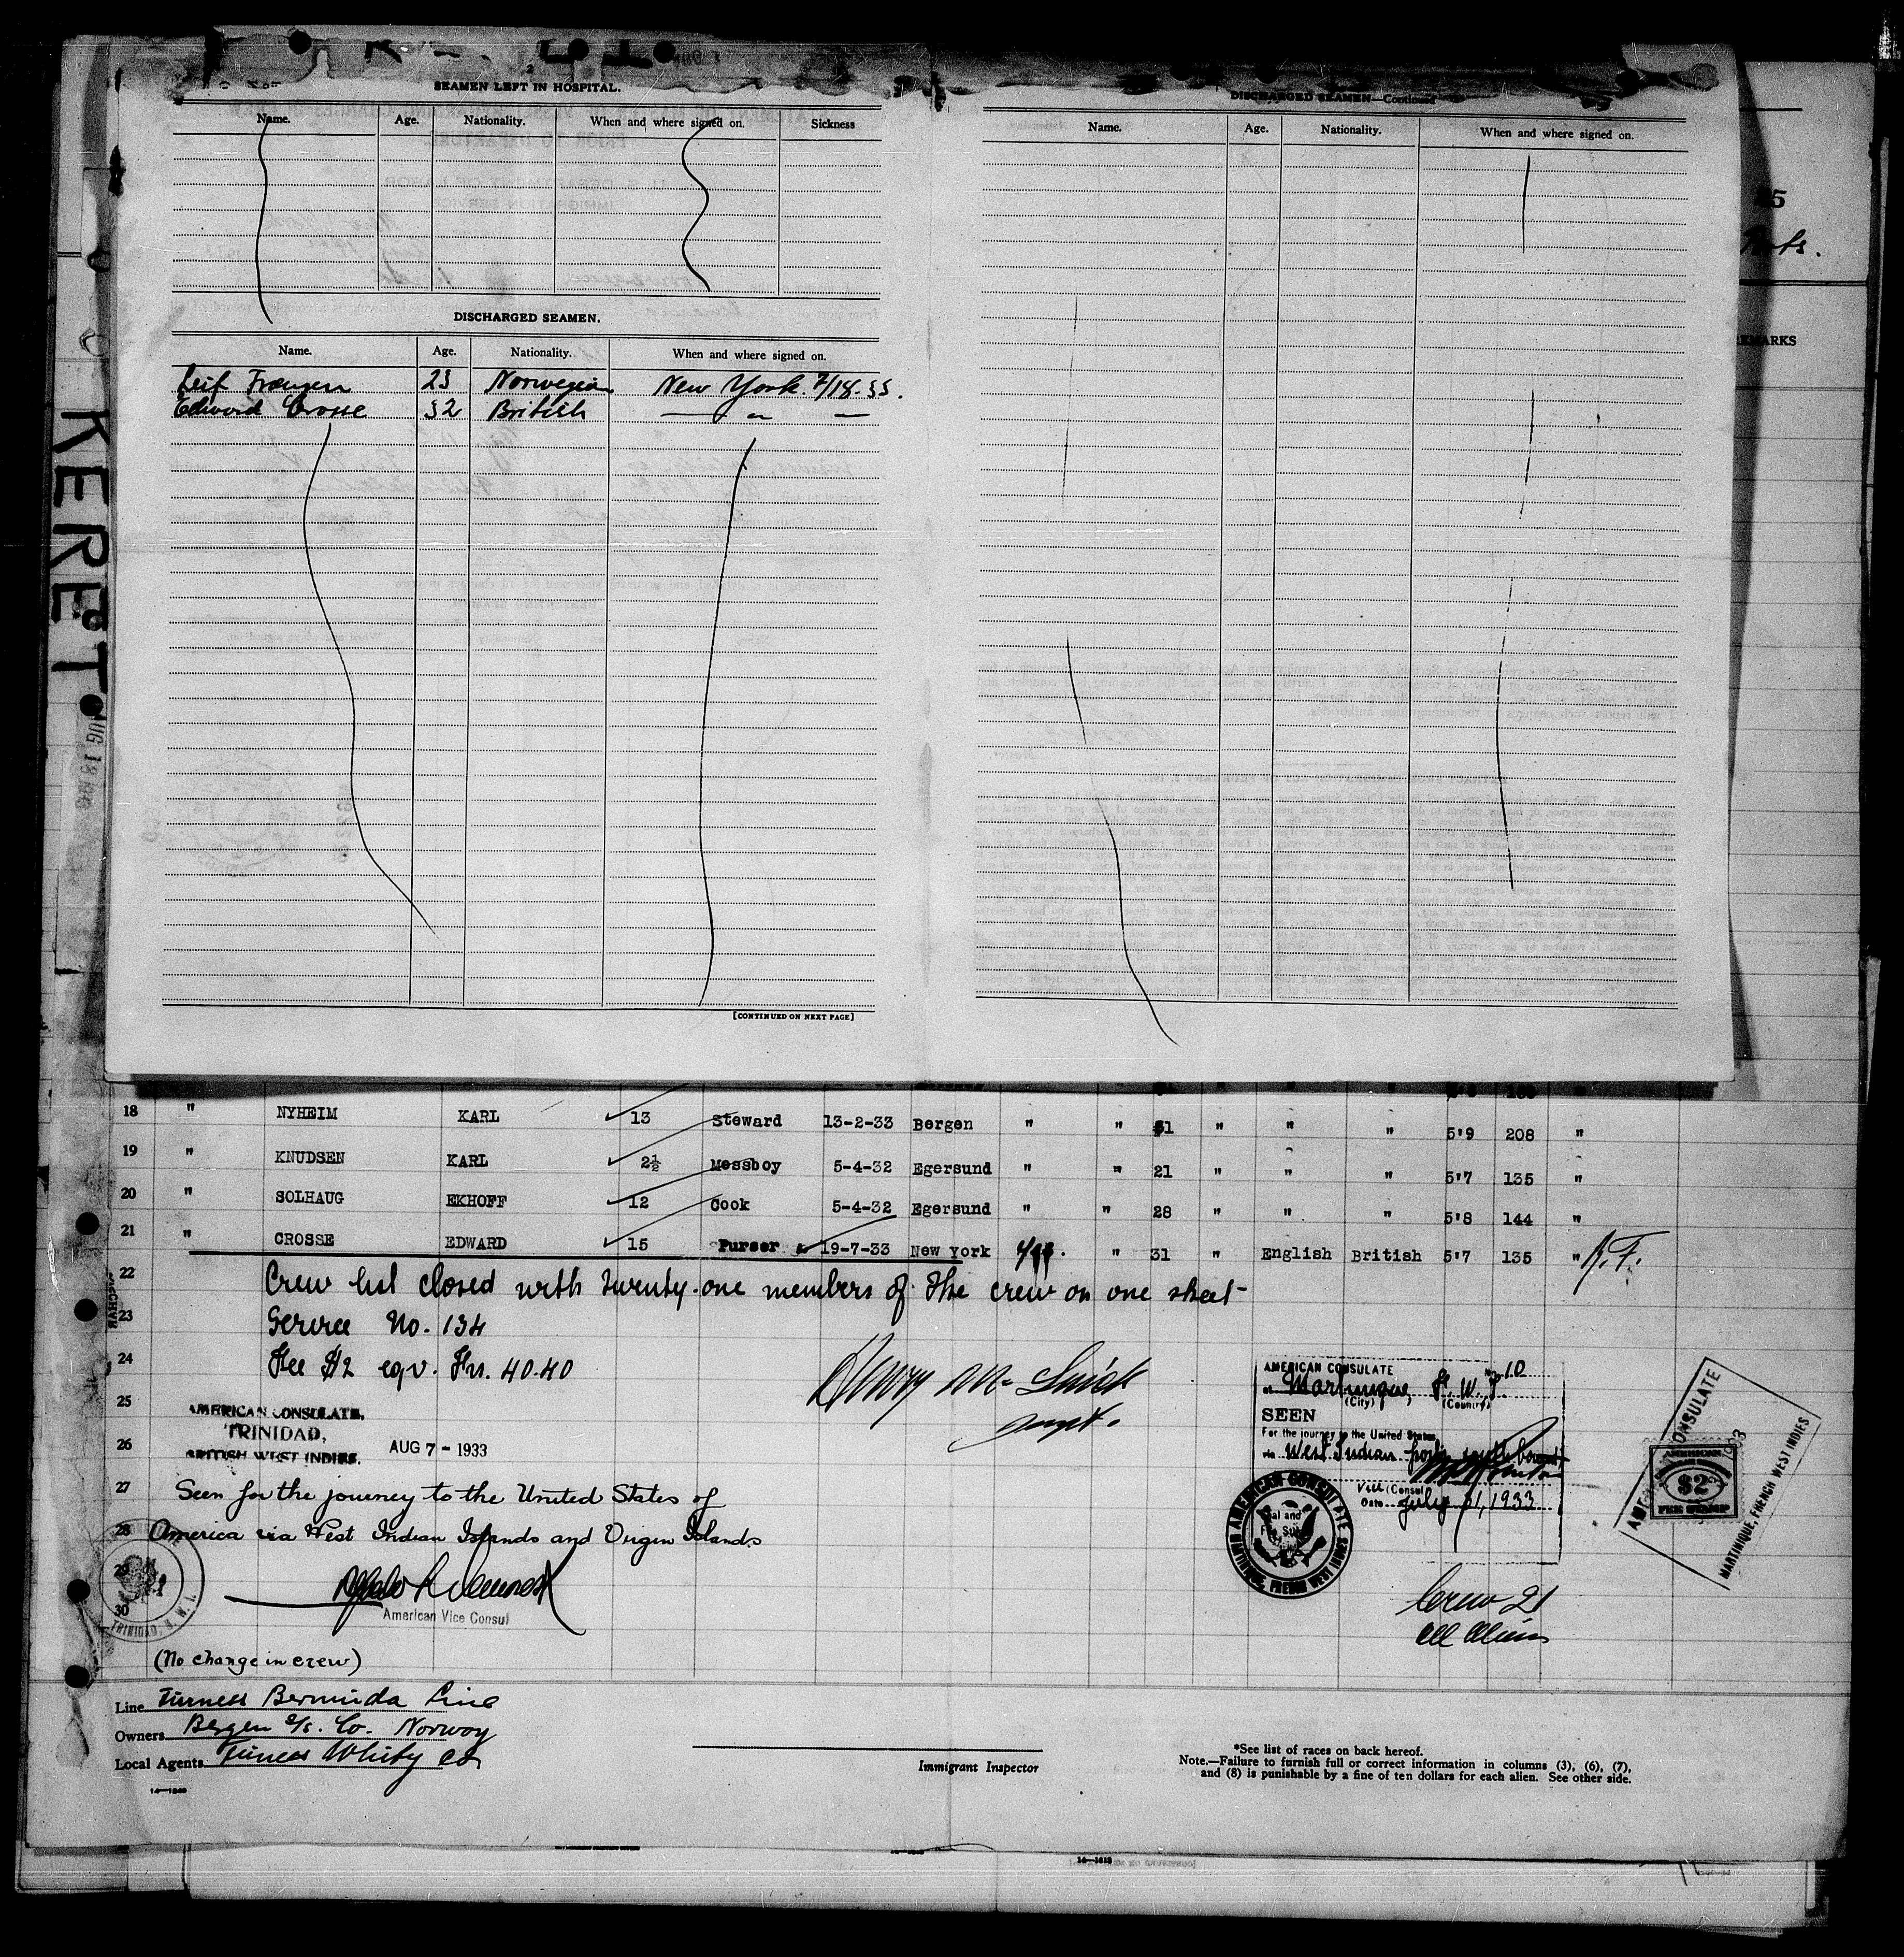 SEAMEN LEFT IN HOSPITAL.
Name. Age. Nationality. When and where signed on. Sickness
DISCHARGED SEAMEN.
Name. Age. Nationality. When and where signed on.
Leif 23 Norwegian New York. 7/18-33.
Edward Crosse 32 British — " —
[CONTINUED ON NEXT PAGE]
DISCHARGED SEAMEN—Continued
Name. Age. Nationality. When and where signed on.
KERET
18 " NYHEIM KARL 13 Steward 13-2-33 Bergen " " 31 " " " 5'9 208 "
19 " KNUDSEN KARL 2½ Messboy 5-4-32 Egersund " " 21 " " " 5'7 135 "
20 " SOLHAUG EKHOFF 12 Cook 5-4-32 Egersund " " 28 " " " 5'8 144 "
21 " CROSSE EDWARD 15 Purser 19-7-33 New York " 31 " English British 5'7 135 "
22 Crew list closed with twenty-one members of the crew on one sheet
23 Service No. 134
24 Fee $2 eqv. Frs. 40.40
25
26
27
28
29
30
AMERICAN CONSULATE,
TRINIDAD,
BRITISH WEST INDIES.
AUG 7 - 1933
Seen for the journey to the United States of
America via West Indian Islands and Virgin Islands
American Vice Consul
TRINIDAD, B. W. I.
(No change in crew)
AMERICAN CONSULATE No. 10
at Martinique, F. W. I.
(City) (Country)
SEEN
For the journey to the United States
via West Indian ports southbound
Vice Consul
Date July 31, 1933
AMERICAN CONSULATE
MARTINIQUE, FRENCH WEST INDIES
AMERICAN CONSULATE
AMERICAN
$2
FEE STAMP
MARTINIQUE, FRENCH WEST INDIES
Crew 21
All Aliens
Line Furness Bermuda Line
Owners Bergen S/S. Co. Norway
Local Agents Furness Whitby Co
Immigrant Inspector
*See list of races on back hereof.
Note.—Failure to furnish full or correct information in columns (3), (6), (7),
and (8) is punishable by a fine of ten dollars for each alien. See other side.